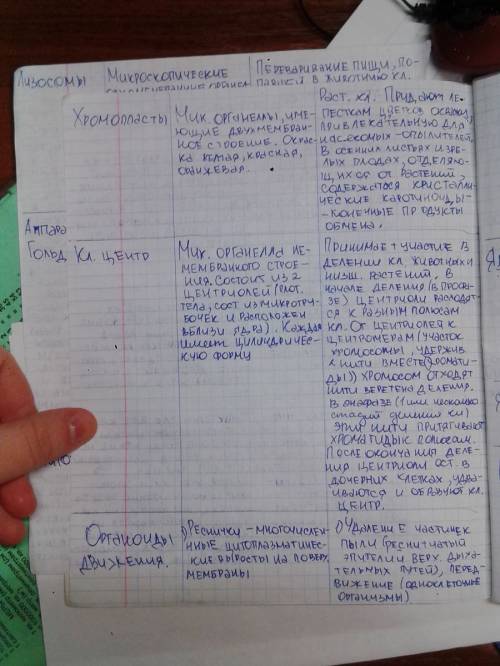 Лизосомы
Микроскопические
Переваривание пищи, по-
павшей в животную кл.
Хромопласты
Мик. органеллы, име-
ющие двухмембран-
ное строение. Окрас-
ка желтая, красная,
оранжевая.
Раст. кл. Придают ле-
песткам цветов окраску
привлекательную для
насекомых-опылителей.
В осенних листьях и зре-
лых плодах, отделяю-
щихся от растений,
содержатся кристалли-
ческие каротиноиды-
-конечные продукты
обмена.
Аппара
Гольд
Кл. центр
Мик. органелла не-
мембранного строе-
ния. Состоит из 2
центриолей(плот.
тела, сост из микротру-
бочек и расположен
вблизи ядра). Каждая
имеет цилиндричес-
кую форму
Принимает участие в
делении кл животных и
низш. растений. В
начале деления (в профа-
зе) центриоли расходятся
к разным полюсам
кл. От центриолей к
центромерам (участок
хромосомы, удержив.
2 нити вместе(хромати-
ды)) хромосом отходят
нити веретена деления.
В анафазе (1 или несколько
стадий деления кл)
эти нити притягивают
хроматиды к полюсам.
После окончания деле-
ния центриоли ост. в
дочерних клетках, удва-
иваются и образуют кл.
центр.
Органоиды
движения.
1) Реснички - многочислен-
ные цитоплазматичес-
кие выросты на поверх.
мембраны
1) Удаление частичек
пыли (реснитчатый
эпителий верх. дыха-
тельных путей), перед-
вижение (одноклеточные
организмы)